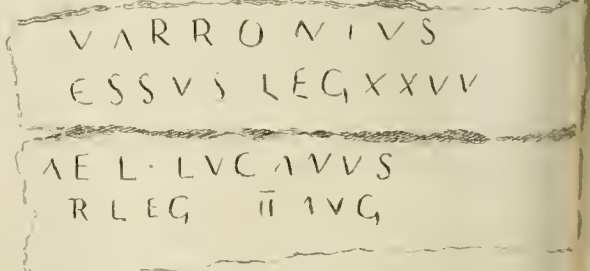 VARRONIVS
ESSVS LEG XXVV
AEL · LVCAVVS
R LEG II AVG